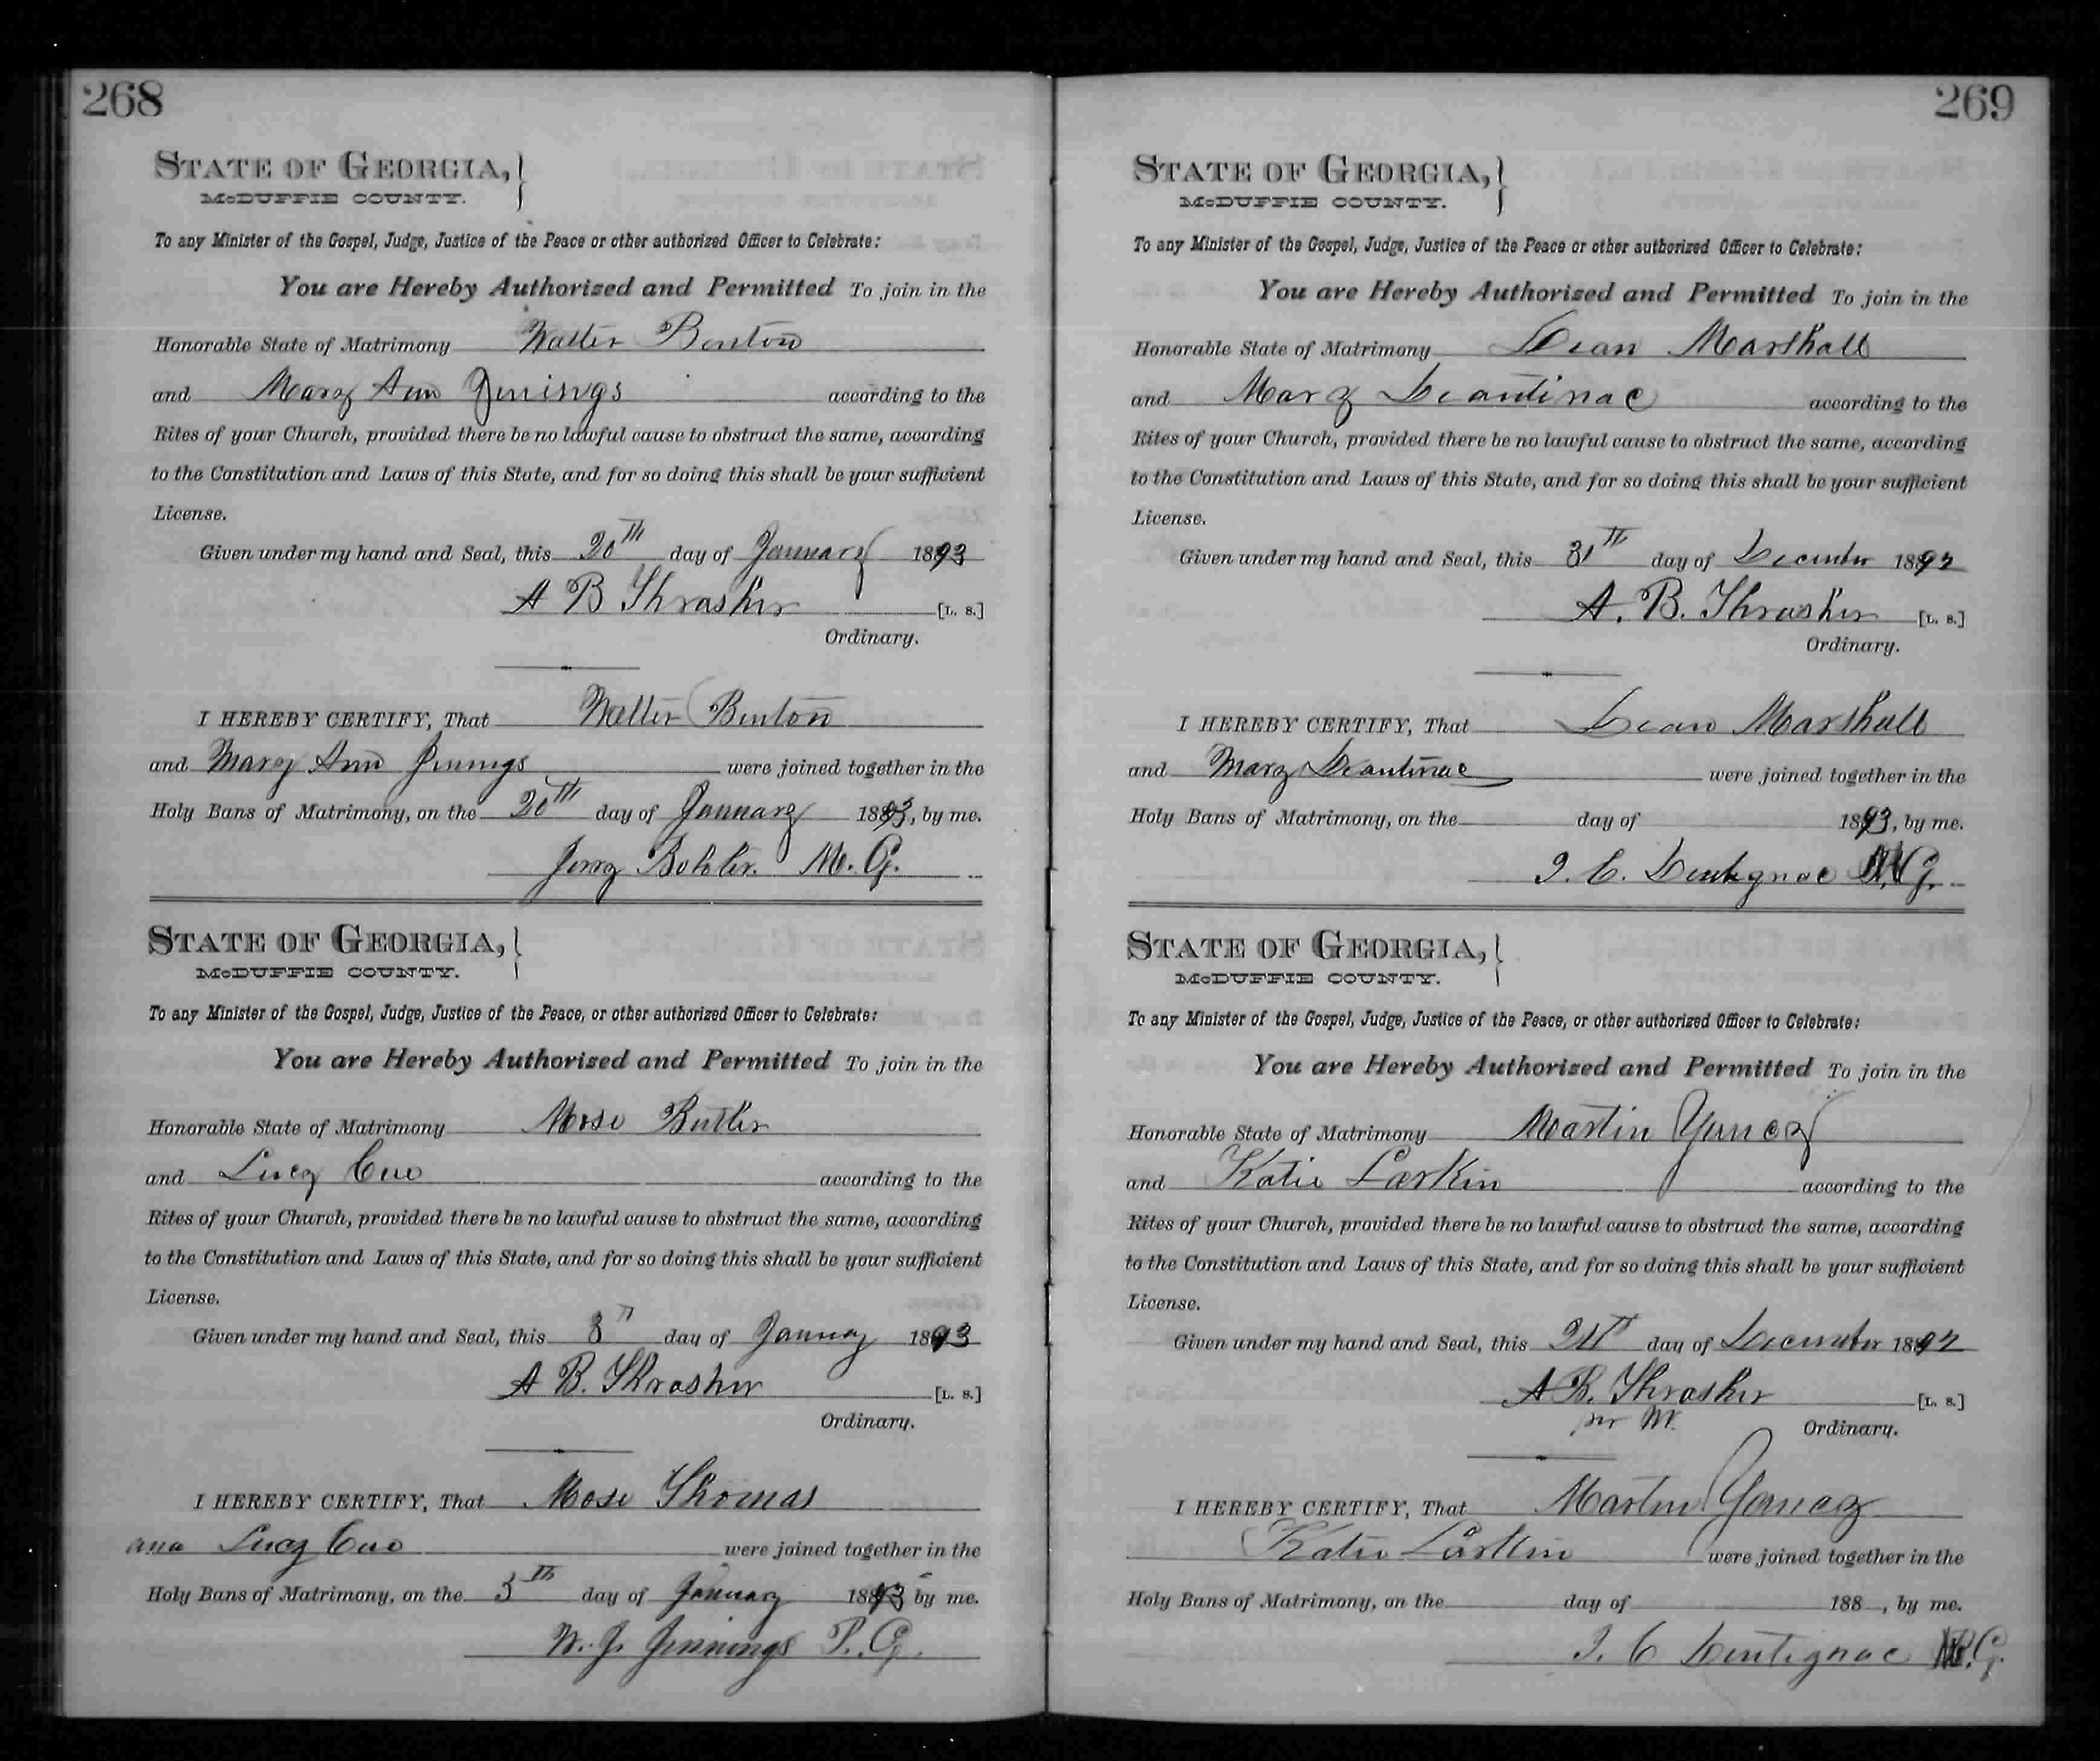 268
STATE OF GEORGIA,
McDUFFIE COUNTY.
To any Minister of the Gospel, Judge, Justice of the Peace or other authorized Officer to Celebrate:
You are Hereby Authorized and Permitted To join in the
Honorable State of Matrimony Walter Benton
and Mary Ann Jinings according to the
Rites of your Church, provided there be no lawful cause to obstruct the same, according
to the Constitution and Laws of this State, and for so doing this shall be your sufficient
License.
Given under my hand and Seal, this 20th day of January 1893
A B Thrasher [L. S.]
Ordinary.
I HEREBY CERTIFY, That Walter Benton
and Mary Ann Jinings were joined together in the
Holy Bans of Matrimony, on the 20th day of January 1893, by me.
Jerry M. G.
STATE OF GEORGIA,
McDUFFIE COUNTY.
To any Minister of the Gospel, Judge, Justice of the Peace, or other authorized Officer to Celebrate:
You are Hereby Authorized and Permitted To join in the
Honorable State of Matrimony Mose Butler
and Lucy according to the
Rites of your Church, provided there be no lawful cause to obstruct the same, according
to the Constitution and Laws of this State, and for so doing this shall be your sufficient
License.
Given under my hand and Seal, this day of January 1893
A B. Thrasher [L. S.]
Ordinary.
I HEREBY CERTIFY, That Mose Thomas
and Lucy were joined together in the
Holy Bans of Matrimony, on the 5th day of January 1893 by me.
W. J. Jennings P. G.
269
STATE OF GEORGIA,
McDUFFIE COUNTY.
To any Minister of the Gospel, Judge, Justice of the Peace or other authorized Officer to Celebrate:
You are Hereby Authorized and Permitted To join in the
Honorable State of Matrimony Dean Marshall
and Mary according to the
Rites of your Church, provided there be no lawful cause to obstruct the same, according
to the Constitution and Laws of this State, and for so doing this shall be your sufficient
License.
Given under my hand and Seal, this 31th day of December 1892
A. B. Thrasher [L. S.]
Ordinary.
I HEREBY CERTIFY, That Dean Marshall
and Mary were joined together in the
Holy Bans of Matrimony, on the day of 1893, by me.
J. C. Dentignac G.
STATE OF GEORGIA,
McDUFFIE COUNTY.
To any Minister of the Gospel, Judge, Justice of the Peace, or other authorized Officer to Celebrate:
You are Hereby Authorized and Permitted To join in the
Honorable State of Matrimony Martin Yancey
and Katie Larkin according to the
Rites of your Church, provided there be no lawful cause to obstruct the same, according
to the Constitution and Laws of this State, and for so doing this shall be your sufficient
License.
Given under my hand and Seal, this day of December 1892
A B. Thrasher [L. S.]
per W. Ordinary.
I HEREBY CERTIFY, That Martin Yancey
Katie Larkin were joined together in the
Holy Bans of Matrimony, on the day of 188 , by me.
J. C Dentignac G.